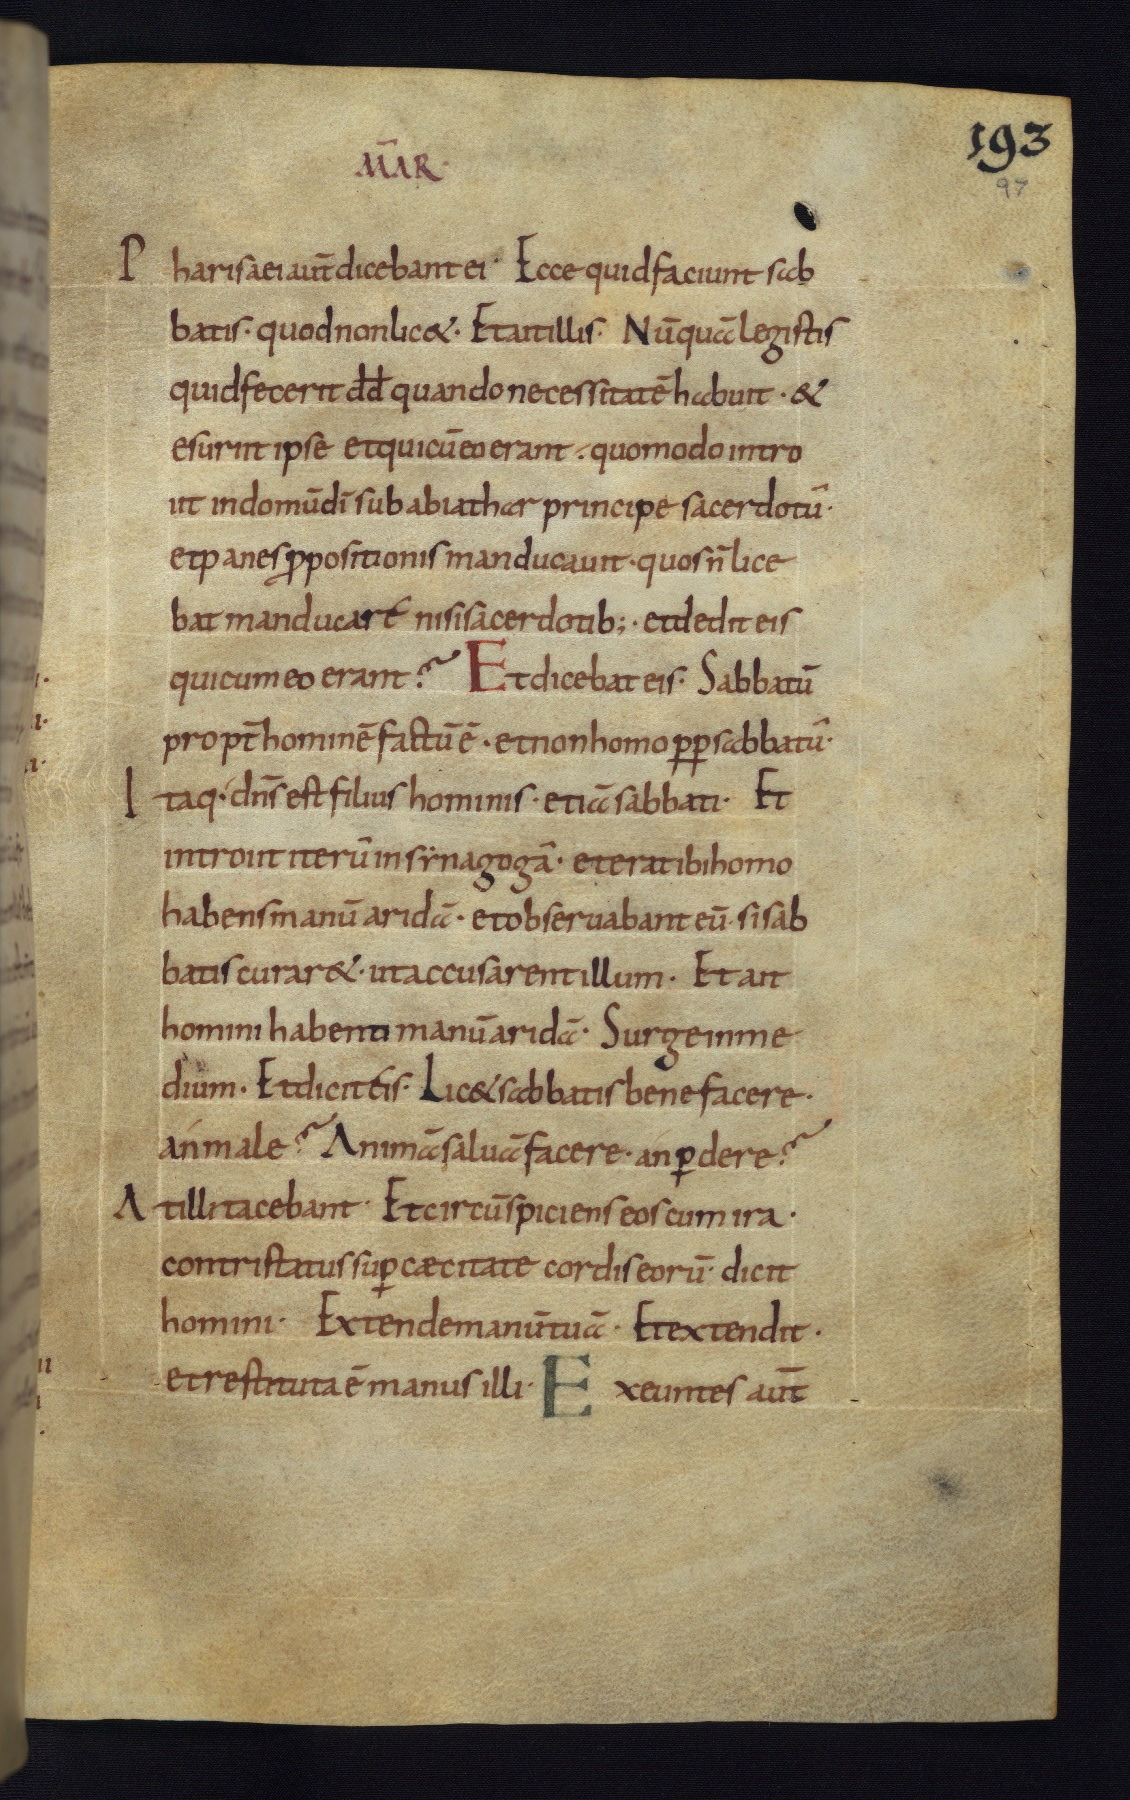 M̅AR·
193
97
Pharisaei aut̅ dicebant ei· Ecce quid faciunt sab
batis· quod non lic&· Et ait illis· Nūquā legistis
quid fecerit dd̅ quando necessitatē habuit· &
esuriit ipse et qui cū eo erant· quomodo intro
iit in domū dī sub abiathar principe sacerdotū·
et panes ꝓpositionis manducauit· quos n̅ lice
bat manducare nisi sacerdotib;· et dedit eis
qui cum eo erant? Et dicebat eis· Sabbatū
propt̅ hominē factū ē· et non homo ꝓp sabbatū·
Itaq· dn̅s est filius hominis· etiā sabbati· Et
introiit iterū in synagogā· et erat ibi homo
habens manū aridā· et obseruabant eū· si sab
batis curar&· ut accusarent illum· Et ait
homini habenti manū aridā· Surge in me
dium· Et dicit eis· Lic& sabbatis bene facere·
an male? Animā saluā facere· an ꝑdere?
At illi tacebant· Et circūspiciens eos cum ira·
contristatus suꝑ caecitate cordis eorū· dicit
homini· Extende manū tuā· Et extendit·
et restituta ē manus illi· Exeuntes aut̅